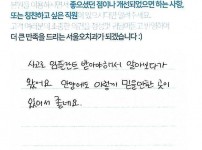 좋으셨던 점이나 개선되었으면 하는 사항,
또는 칭찬하고 싶은 직원
더 큰 만족을 드리는 서울오치과가 되겠습니다 :)
사고로 임플란트 받아야해서 알아보다가
왔어요 안양에도 이렇게 믿을만한 곳이
있어서 좋네요.